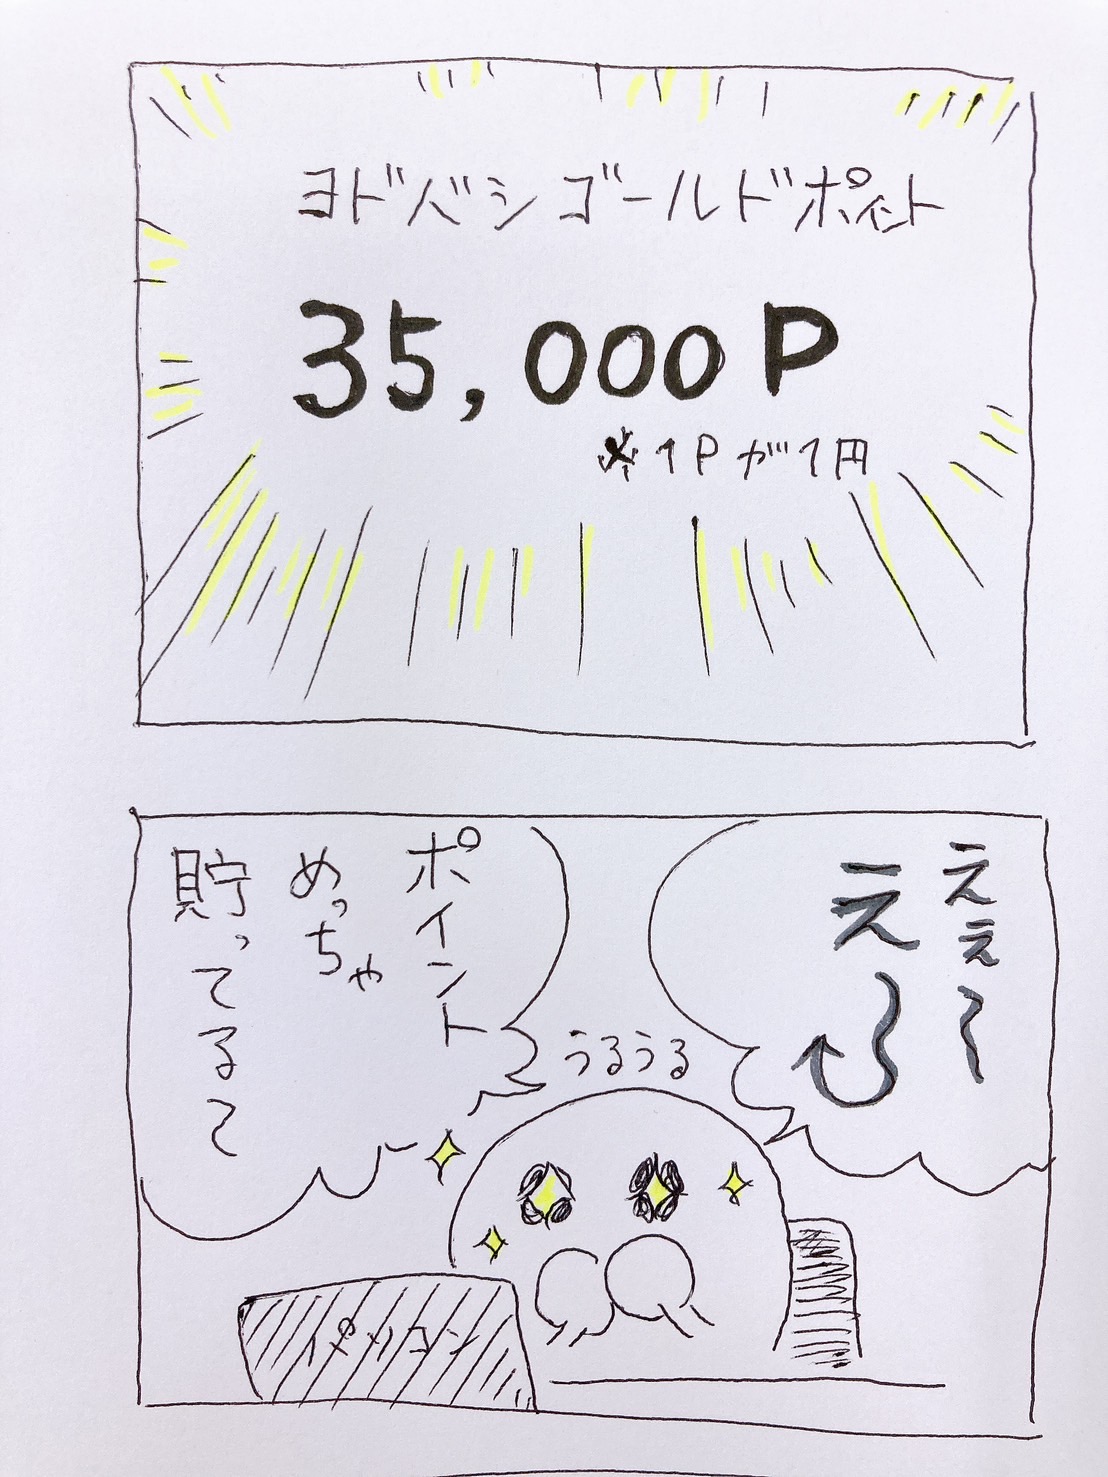 ヨドバシゴールドポイント
35,000P
※1Pが1円
ええ〜
え〜
ポイント
めっちゃ
貯ってるて
うるうる
パソコン